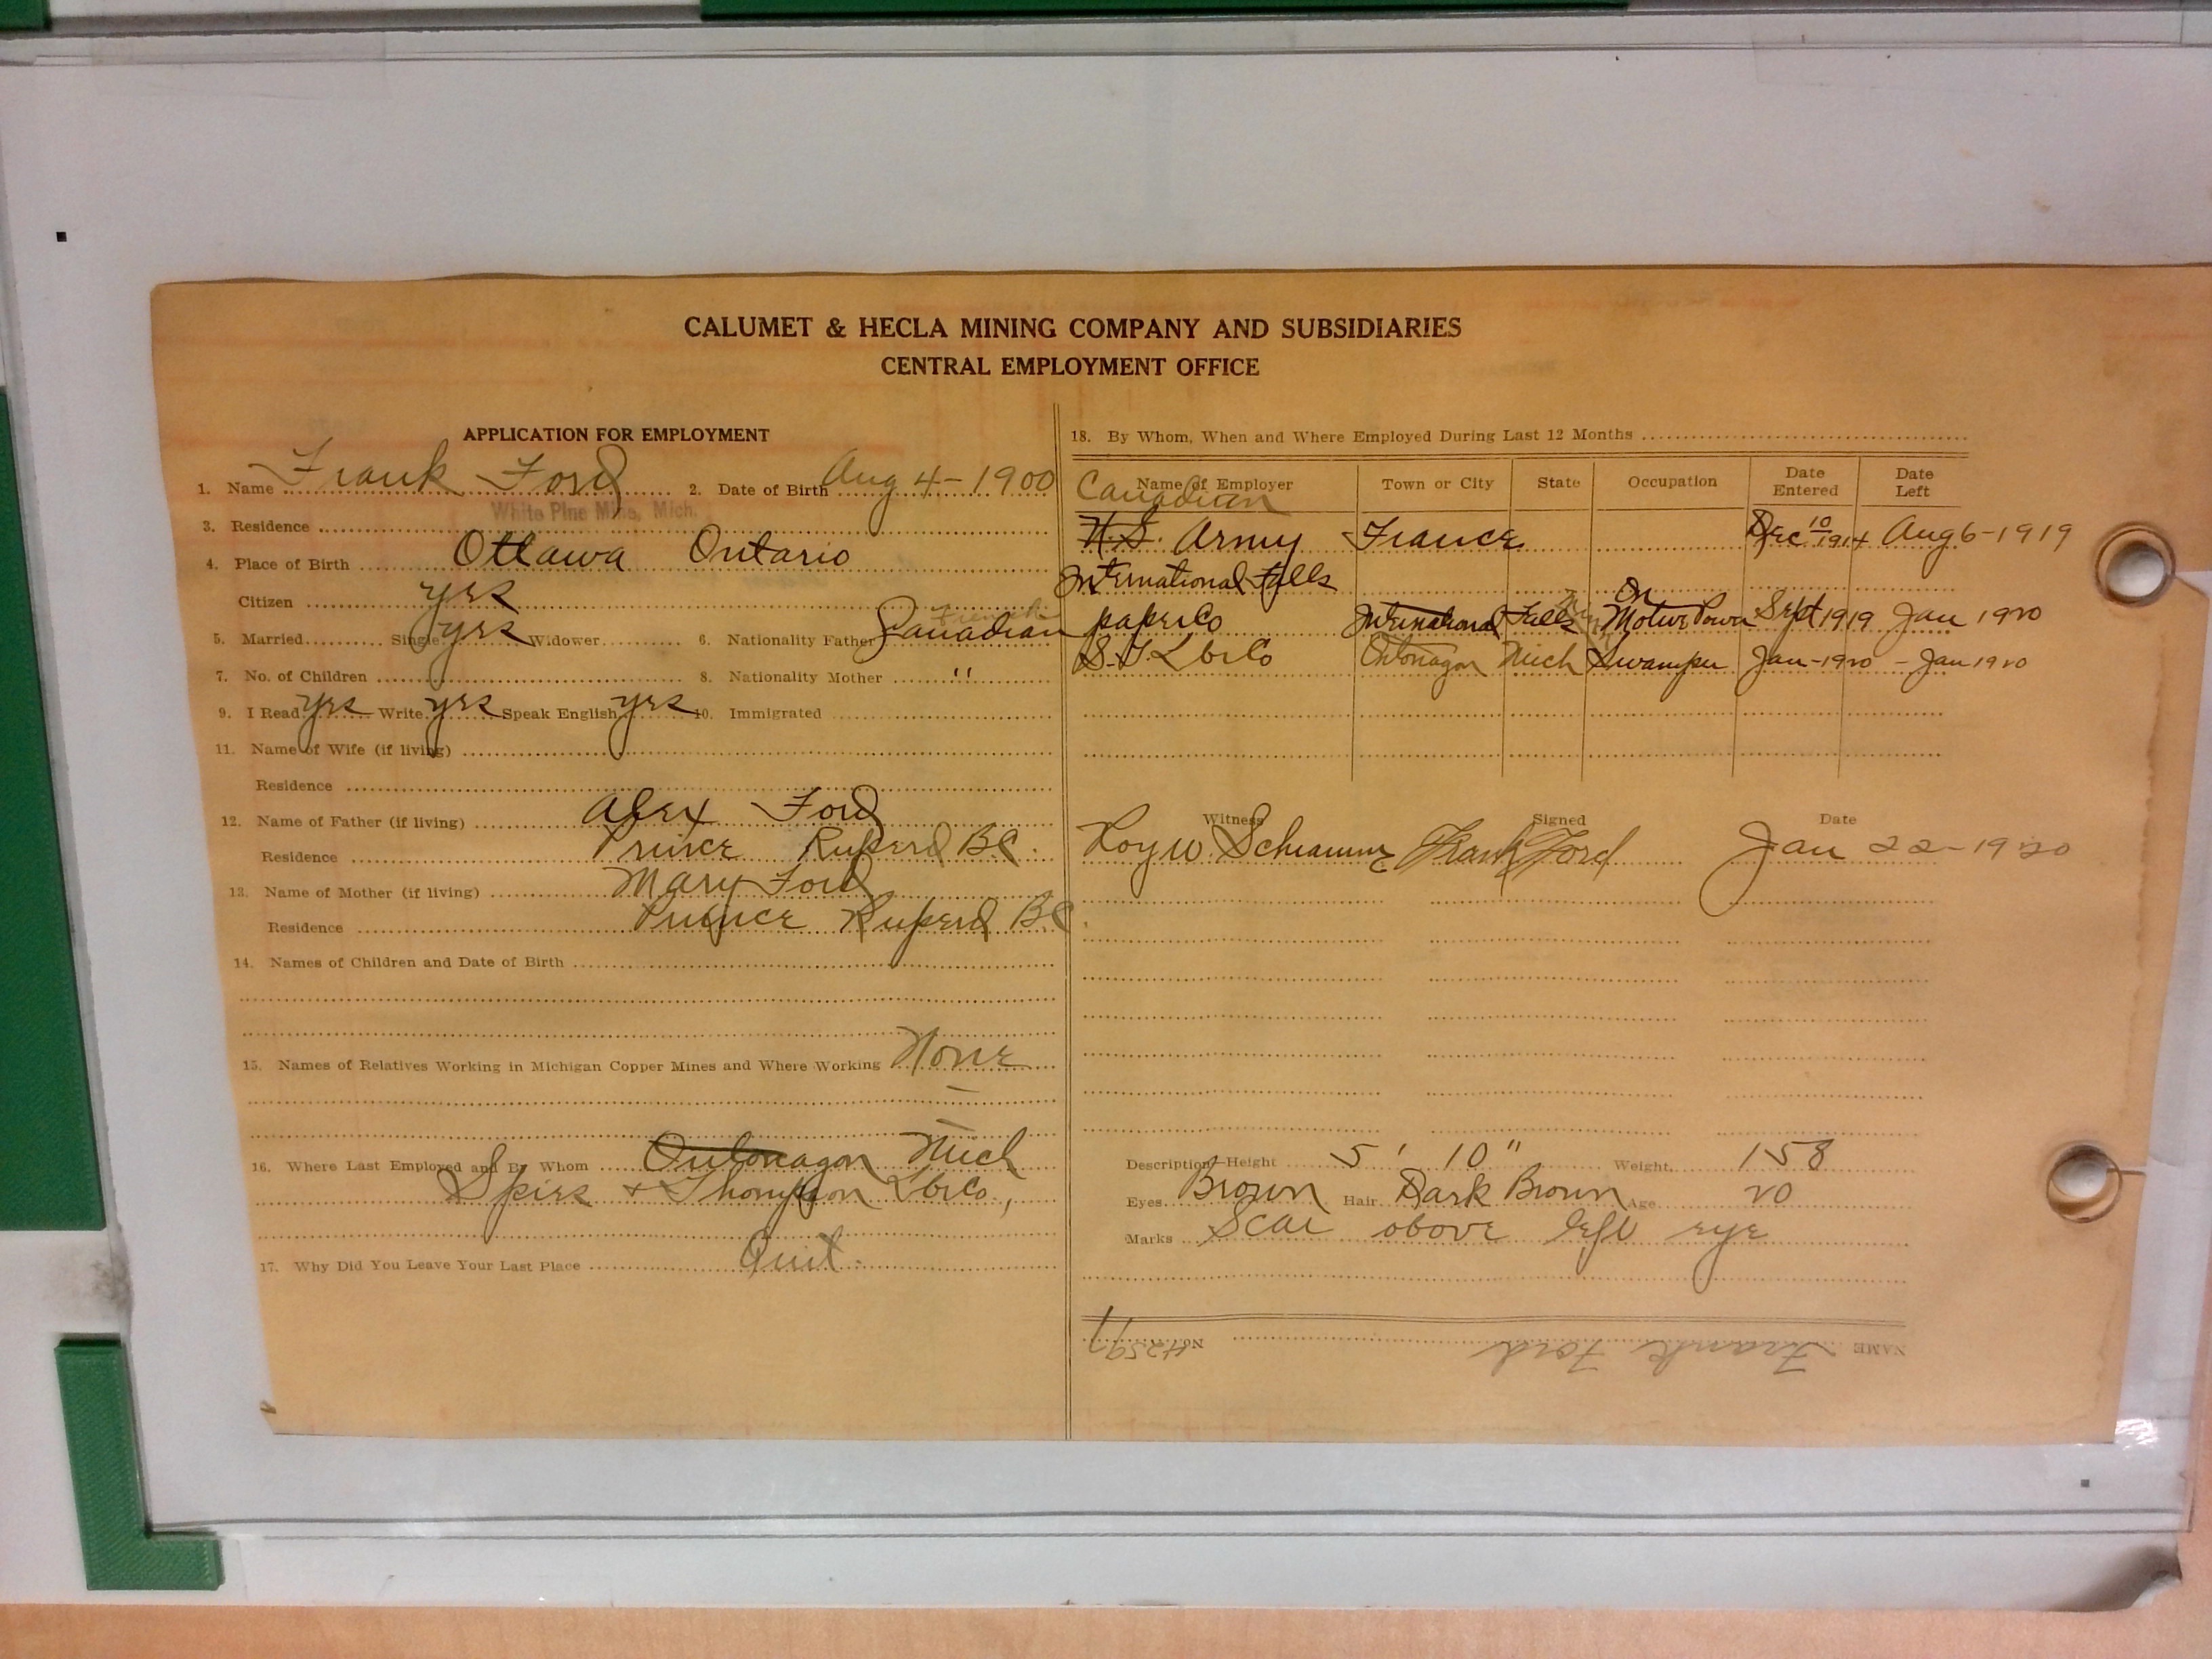 CALUMET & HECLA MINING COMPANY AND SUBSIDIARIES
CENTRAL EMPLOYMENT OFFICE
APPLICATION FOR EMPLOYMENT
1. Name Frank Ford 2. Date of Birth Aug 4-1900
White Pine Mine, Mich.
3. Residence
4. Place of Birth Ottawa Ontario
Citizen yes
French
5. Married Single yes Widower 6. Nationality Father Canadian
7. No. of Children 8. Nationality Mother "
9. I Read yes Write yes Speak English yes 10. Immigrated
11. Name of Wife (if living)
Residence
12. Name of Father (if living) Alex Ford
Residence Prince Ruperd B.C.
13. Name of Mother (if living) Mary Ford
Residence Prince Ruperd B.C.
14. Names of Children and Date of Birth
15. Names of Relatives Working in Michigan Copper Mines and Where Working None
16. Where Last Employed and By Whom Ontonagon Mich
Spies & Thompson LbrCo,
17. Why Did You Leave Your Last Place Quit.
18. By Whom, When and Where Employed During Last 12 Months
Name of Employer Town or City State Occupation Date Entered Date Left
Canadian
U.S. Army France Dec 10 1914 Aug 6-1919
International Falls
paper Co International Falls On Motive Power Sept 1919 Jan 1920
S.T. LbrCo Ontonagon Mich Swamper Jan-1920 - Jan 1920
Witness Signed Date
Roy W. Schramme Frank Ford Jan 22-1920
Description—Height 5' 10" Weight 158
Eyes Brown Hair Dark Brown Age 20
Marks Scar above left eye
NAME Frank Ford No. 42597